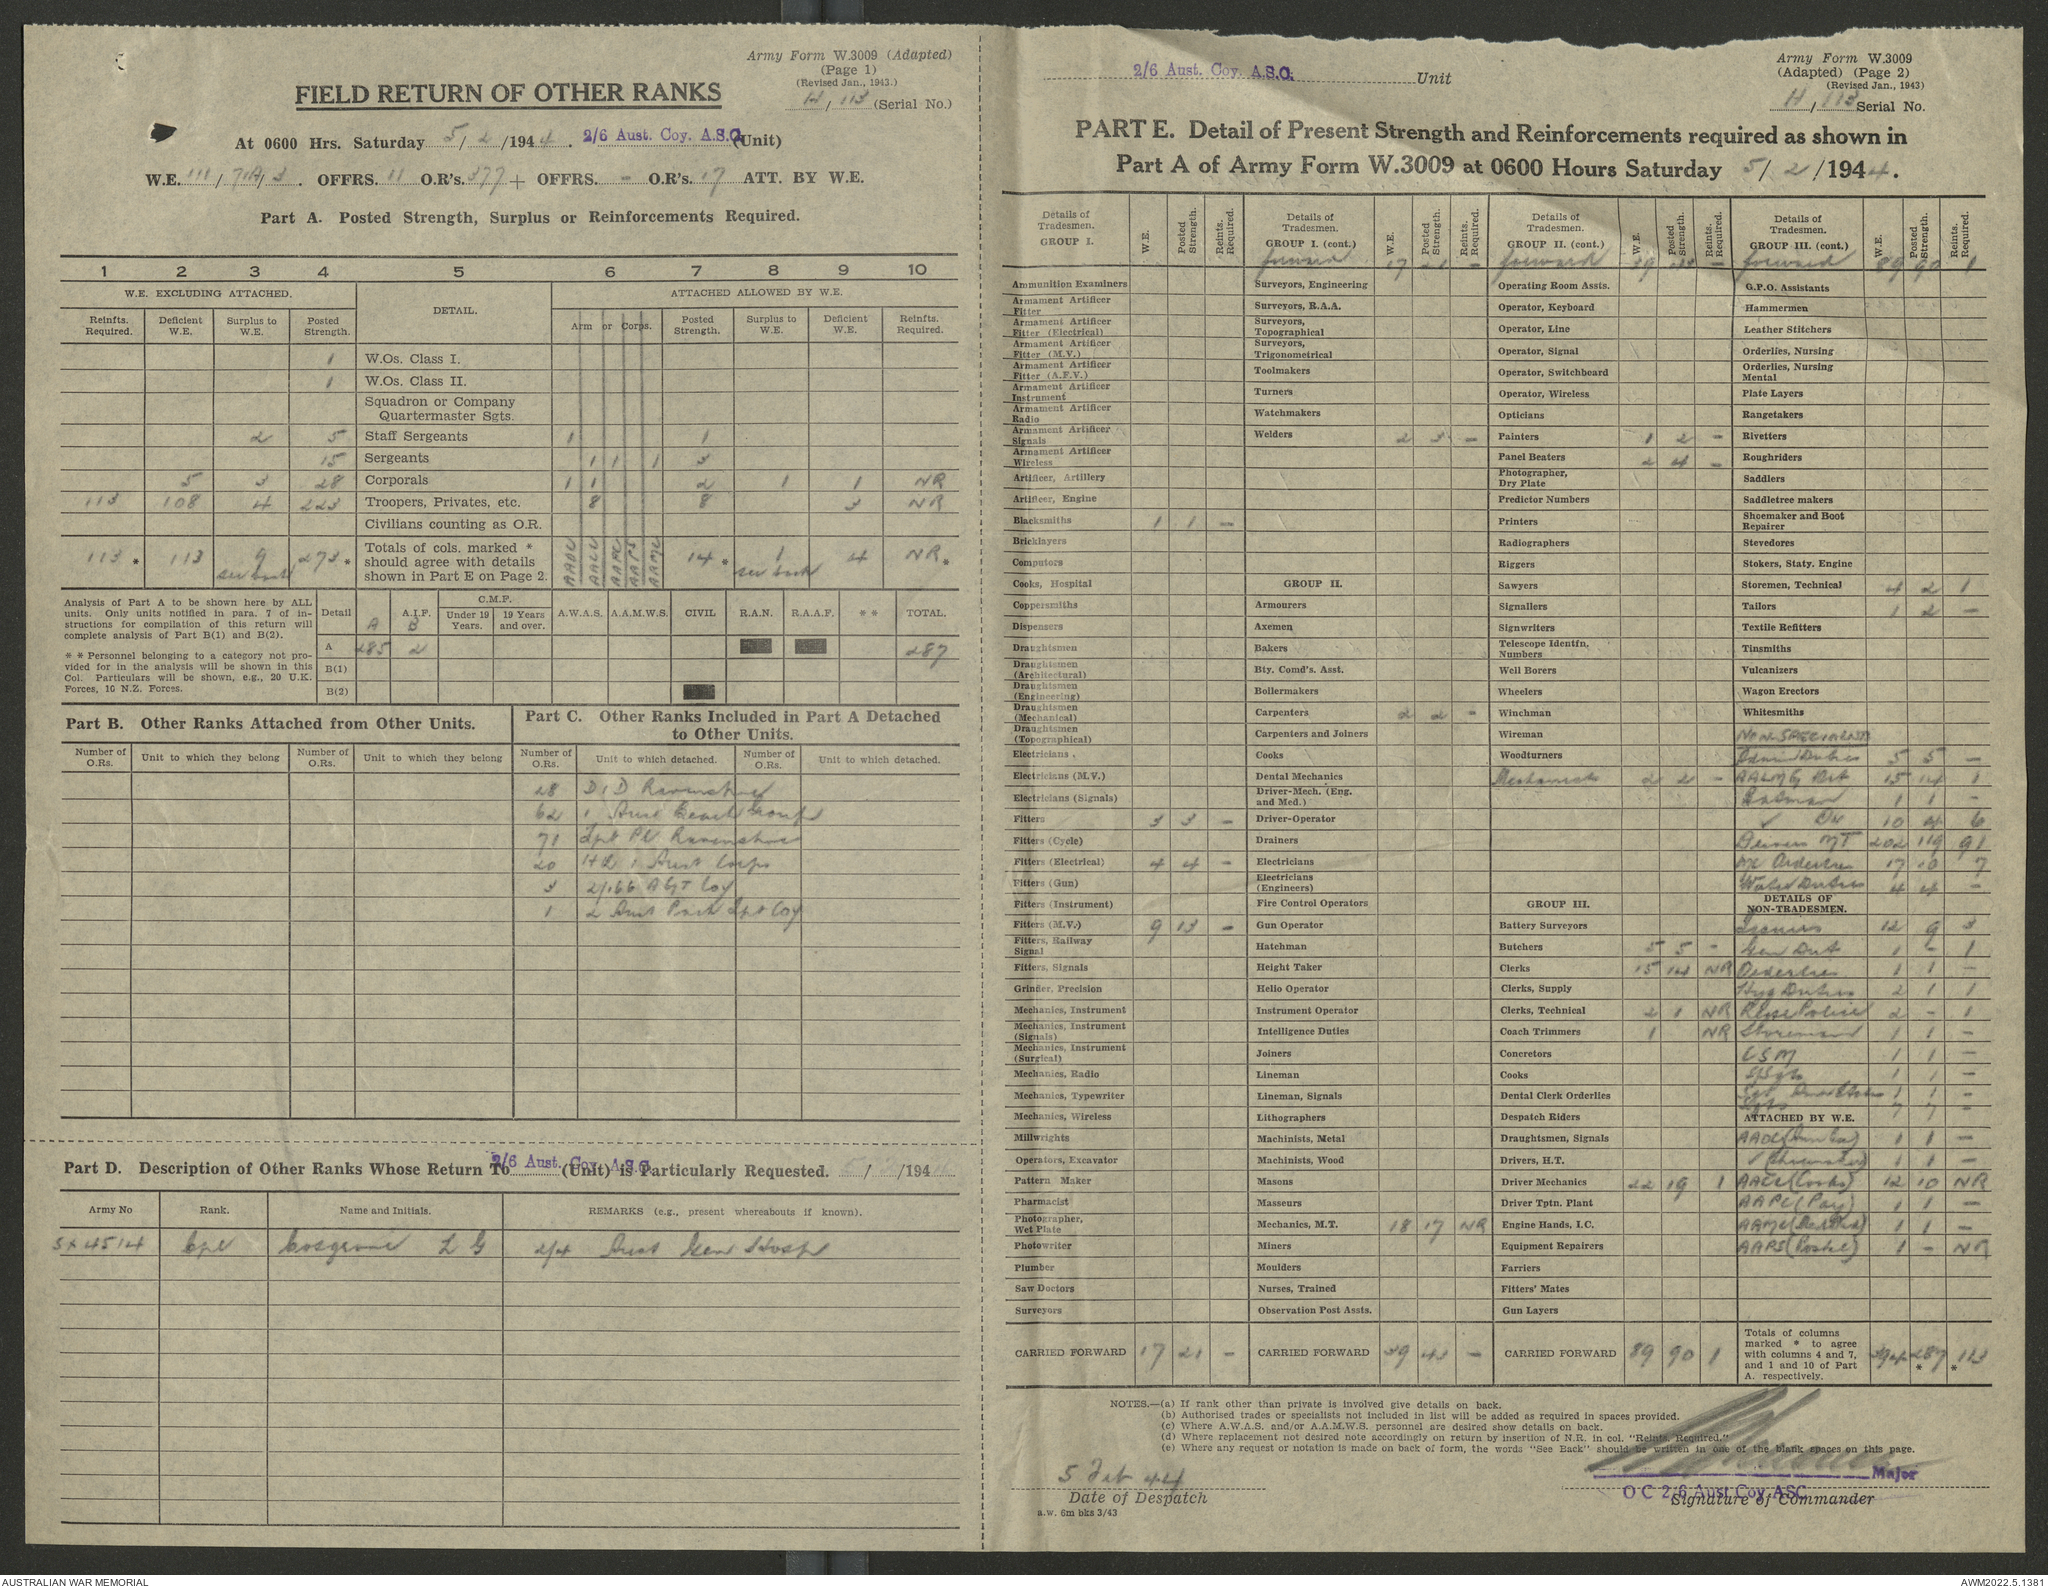 Army Form W.3009 (Adapted)
(Page 1)
(Revised Jan., 1943.)
H / 113 (Serial No.)
FIELD RETURN OF OTHER RANKS
At 0600 Hrs. Saturday 5/2/1944. 2/6 Aust. Coy. A.S.C. (Unit)
W.E. 111/71A/3. OFFRS. 11 O.R's. 377 + OFFRS. - O.R's. 17 ATT. BY W.E.
Part A. Posted Strength, Surplus or Reinforcements Required.
1 2 3 4 5 6 7 8 9 10
W.E. EXCLUDING ATTACHED. DETAIL. ATTACHED ALLOWED BY W.E.
Reinfts. Required. Deficient W.E. Surplus to W.E. Posted Strength. Arm or Corps. Posted Strength. Surplus to W.E. Deficient W.E. Reinfts. Required.
1 W.Os. Class I.
1 W.Os. Class II.
Squadron or Company Quartermaster Sgts.
2 5 Staff Sergeants 1 1
15 Sergeants 1 1 1 3
5 3 28 Corporals 1 1 2 1 1 NR
113 108 4 223 Troopers, Privates, etc. 8 8 3 NR
Civilians counting as O.R.
113 * 113 9 see back 273 * Totals of cols. marked * should agree with details shown in Part E on Page 2. AADC AACC AAPC AAPS AAMC 14 * 1 see back 4 NR *
Analysis of Part A to be shown here by ALL units. Only units notified in para. 7 of instructions for compilation of this return will complete analysis of Part B(1) and B(2).
** Personnel belonging to a category not provided for in the analysis will be shown in this Col. Particulars will be shown, e.g., 20 U.K. Forces, 10 N.Z. Forces.
Detail A A.I.F. B C.M.F. Under 19 Years. 19 Years and over. A.W.A.S. A.A.M.W.S. CIVIL R.A.N. R.A.A.F. ** TOTAL.
A 285 2 287
B(1)
B(2)
Part B. Other Ranks Attached from Other Units.
Number of O.Rs. Unit to which they belong Number of O.Rs. Unit to which they belong
Part C. Other Ranks Included in Part A Detached to Other Units.
Number of O.Rs. Unit to which detached. Number of O.Rs. Unit to which detached.
28 DID Ravenshoe
62 1 Aust Beach Group
71 Tpt Pl Ravenshoe
20 HQ 1 Aust Corps
3 2/166 AGT Coy
1 2 Aust Pack Tpt Coy
Part D. Description of Other Ranks Whose Return To 2/6 Aust. Coy. A.S.C. (Unit) is Particularly Requested. / /194
Army No Rank. Name and Initials. REMARKS (e.g., present whereabouts if known).
SX4514 Cpl Cosgrove L G 2/4 Aust Gen Hosp
2/6 Aust. Coy. A.S.C. Unit
Army Form W.3009
(Adapted) (Page 2)
(Revised Jan., 1943)
H / 113 Serial No.
PART E. Detail of Present Strength and Reinforcements required as shown in
Part A of Army Form W.3009 at 0600 Hours Saturday 5/2/1944.
Details of Tradesmen. GROUP I. W.E. Posted Strength. Reints. Required.
Ammunition Examiners
Armament Artificer Fitter
Armament Artificer Fitter (Electrical)
Armament Artificer Fitter (M.V.)
Armament Artificer Fitter (A.F.V.)
Armament Artificer Instrument
Armament Artificer Radio
Armament Artificer Signals
Armament Artificer Wireless
Artificer, Artillery
Artificer, Engine
Blacksmiths 1 1 -
Bricklayers
Computors
Cooks, Hospital
Coppersmiths
Dispensers
Draughtsmen
Draughtsmen (Architectural)
Draughtsmen (Engineering)
Draughtsmen (Mechanical)
Draughtsmen (Topographical)
Electricians .
Electricians (M.V.)
Electricians (Signals)
Fitters 3 3 -
Fitters (Cycle)
Fitters (Electrical) 4 4 -
Fitters (Gun)
Fitters (Instrument)
Fitters (M.V.) 9 13 -
Fitters, Railway Signal
Fitters, Signals
Grinder, Precision
Mechanics, Instrument
Mechanics, Instrument (Signals)
Mechanics, Instrument (Surgical)
Mechanics, Radio
Mechanics, Typewriter
Mechanics, Wireless
Millwrights
Operators, Excavator
Pattern Maker
Pharmacist
Photographer, Wet Plate
Photowriter
Plumber
Saw Doctors
Surveyors
CARRIED FORWARD 17 21 -
Details of Tradesmen. GROUP I. (cont.) W.E. Posted Strength. Reints. Required.
forward 17 21 -
Surveyors, Engineering
Surveyors, R.A.A.
Surveyors, Topographical
Surveyors, Trigonometrical
Toolmakers
Turners
Watchmakers
Welders 2 3 -
GROUP II.
Armourers
Axemen
Bakers
Bty. Comd's. Asst.
Boilermakers
Carpenters 2 2 -
Carpenters and Joiners
Cooks
Dental Mechanics
Driver-Mech. (Eng. and Med.)
Driver-Operator
Drainers
Electricians
Electricians (Engineers)
Fire Control Operators
Gun Operator
Hatchman
Height Taker
Helio Operator
Instrument Operator
Intelligence Duties
Joiners
Lineman
Lineman, Signals
Lithographers
Machinists, Metal
Machinists, Wood
Masons
Masseurs
Mechanics, M.T. 18 17 NR
Miners
Moulders
Nurses, Trained
Observation Post Assts.
CARRIED FORWARD 39 43 -
Details of Tradesmen. GROUP II. (cont.) W.E. Posted Strength. Reints. Required.
forward 39 43 -
Operating Room Assts.
Operator, Keyboard
Operator, Line
Operator, Signal
Operator, Switchboard
Operator, Wireless
Opticians
Painters 1 2 -
Panel Beaters 2 4 -
Photographer, Dry Plate
Predictor Numbers
Printers
Radiographers
Riggers
Sawyers
Signallers
Signwriters
Telescope Identfn. Numbers
Well Borers
Wheelers
Winchman
Wireman
Woodturners
Mechanists 2 2 -
GROUP III.
Battery Surveyors
Butchers 5 5 -
Clerks 15 14 NR
Clerks, Supply
Clerks, Technical 2 1 NR
Coach Trimmers 1 NR
Concretors
Cooks
Dental Clerk Orderlies
Despatch Riders
Draughtsmen, Signals
Drivers, H.T.
Driver Mechanics 22 19 1
Driver Tptn. Plant
Engine Hands, I.C.
Equipment Repairers
Farriers
Fitters' Mates
Gun Layers
CARRIED FORWARD 89 90 1
Details of Tradesmen. GROUP III. (cont.) W.E. Posted Strength. Reints. Required.
forward 89 90 1
G.P.O. Assistants
Hammermen
Leather Stitchers
Orderlies, Nursing
Orderlies, Nursing Mental
Plate Layers
Rangetakers
Rivetters
Roughriders
Saddlers
Saddletree makers
Shoemaker and Boot Repairer
Stevedores
Stokers, Staty. Engine
Storemen, Technical 4 2 1
Tailors 1 2 -
Textile Refitters
Tinsmiths
Vulcanizers
Wagon Erectors
Whitesmiths
NON SPECIALISTS
Admin Duties 5 5 -
AALMG Det 15 14 1
Batman 1 1 -
✓ Dr 10 4 6
Drivers MT 202 119 91
MC Orderlies 17 10 7
Water Duties 4 4 -
DETAILS OF NON-TRADESMEN.
Issuers 12 9 3
Gen Dut 1 - 1
Orderlies 1 1 -
Hyg Duties 2 1 1
Police 2 - 1
Storeman 1 1 -
CSM 1 1 -
S/Sgts 1 1 -
Sgt 1 1 -
Sgts 7 7 -
ATTACHED BY W.E.
AADC 1 1 -
✓ 1 1 -
AACC (Cooks) 12 10 NR
AAPC (Pay) 1 1 -
AAMC 1 1 -
AAPS (Postal) 1 - NR
Totals of columns marked * to agree with columns 4 and 7, and 1 and 10 of Part A. respectively. 394 287 * * 113
NOTES.—(a) If rank other than private is involved give details on back.
(b) Authorised trades or specialists not included in list will be added as required in spaces provided.
(c) Where A.W.A.S. and/or A.A.M.W.S. personnel are desired show details on back.
(d) Where replacement not desired note accordingly on return by insertion of N.R. in col. "Reints. Required."
(e) Where any request or notation is made on back of form, the words "See Back" should be written in one of the blank spaces on this page.
5 Feb 44
Date of Despatch
a.w. 6m bks 3/43
Major
O C 2/6 Aust Coy ASC
Signature of Commander
AUSTRALIAN WAR MEMORIAL
AWM2022.5.1381